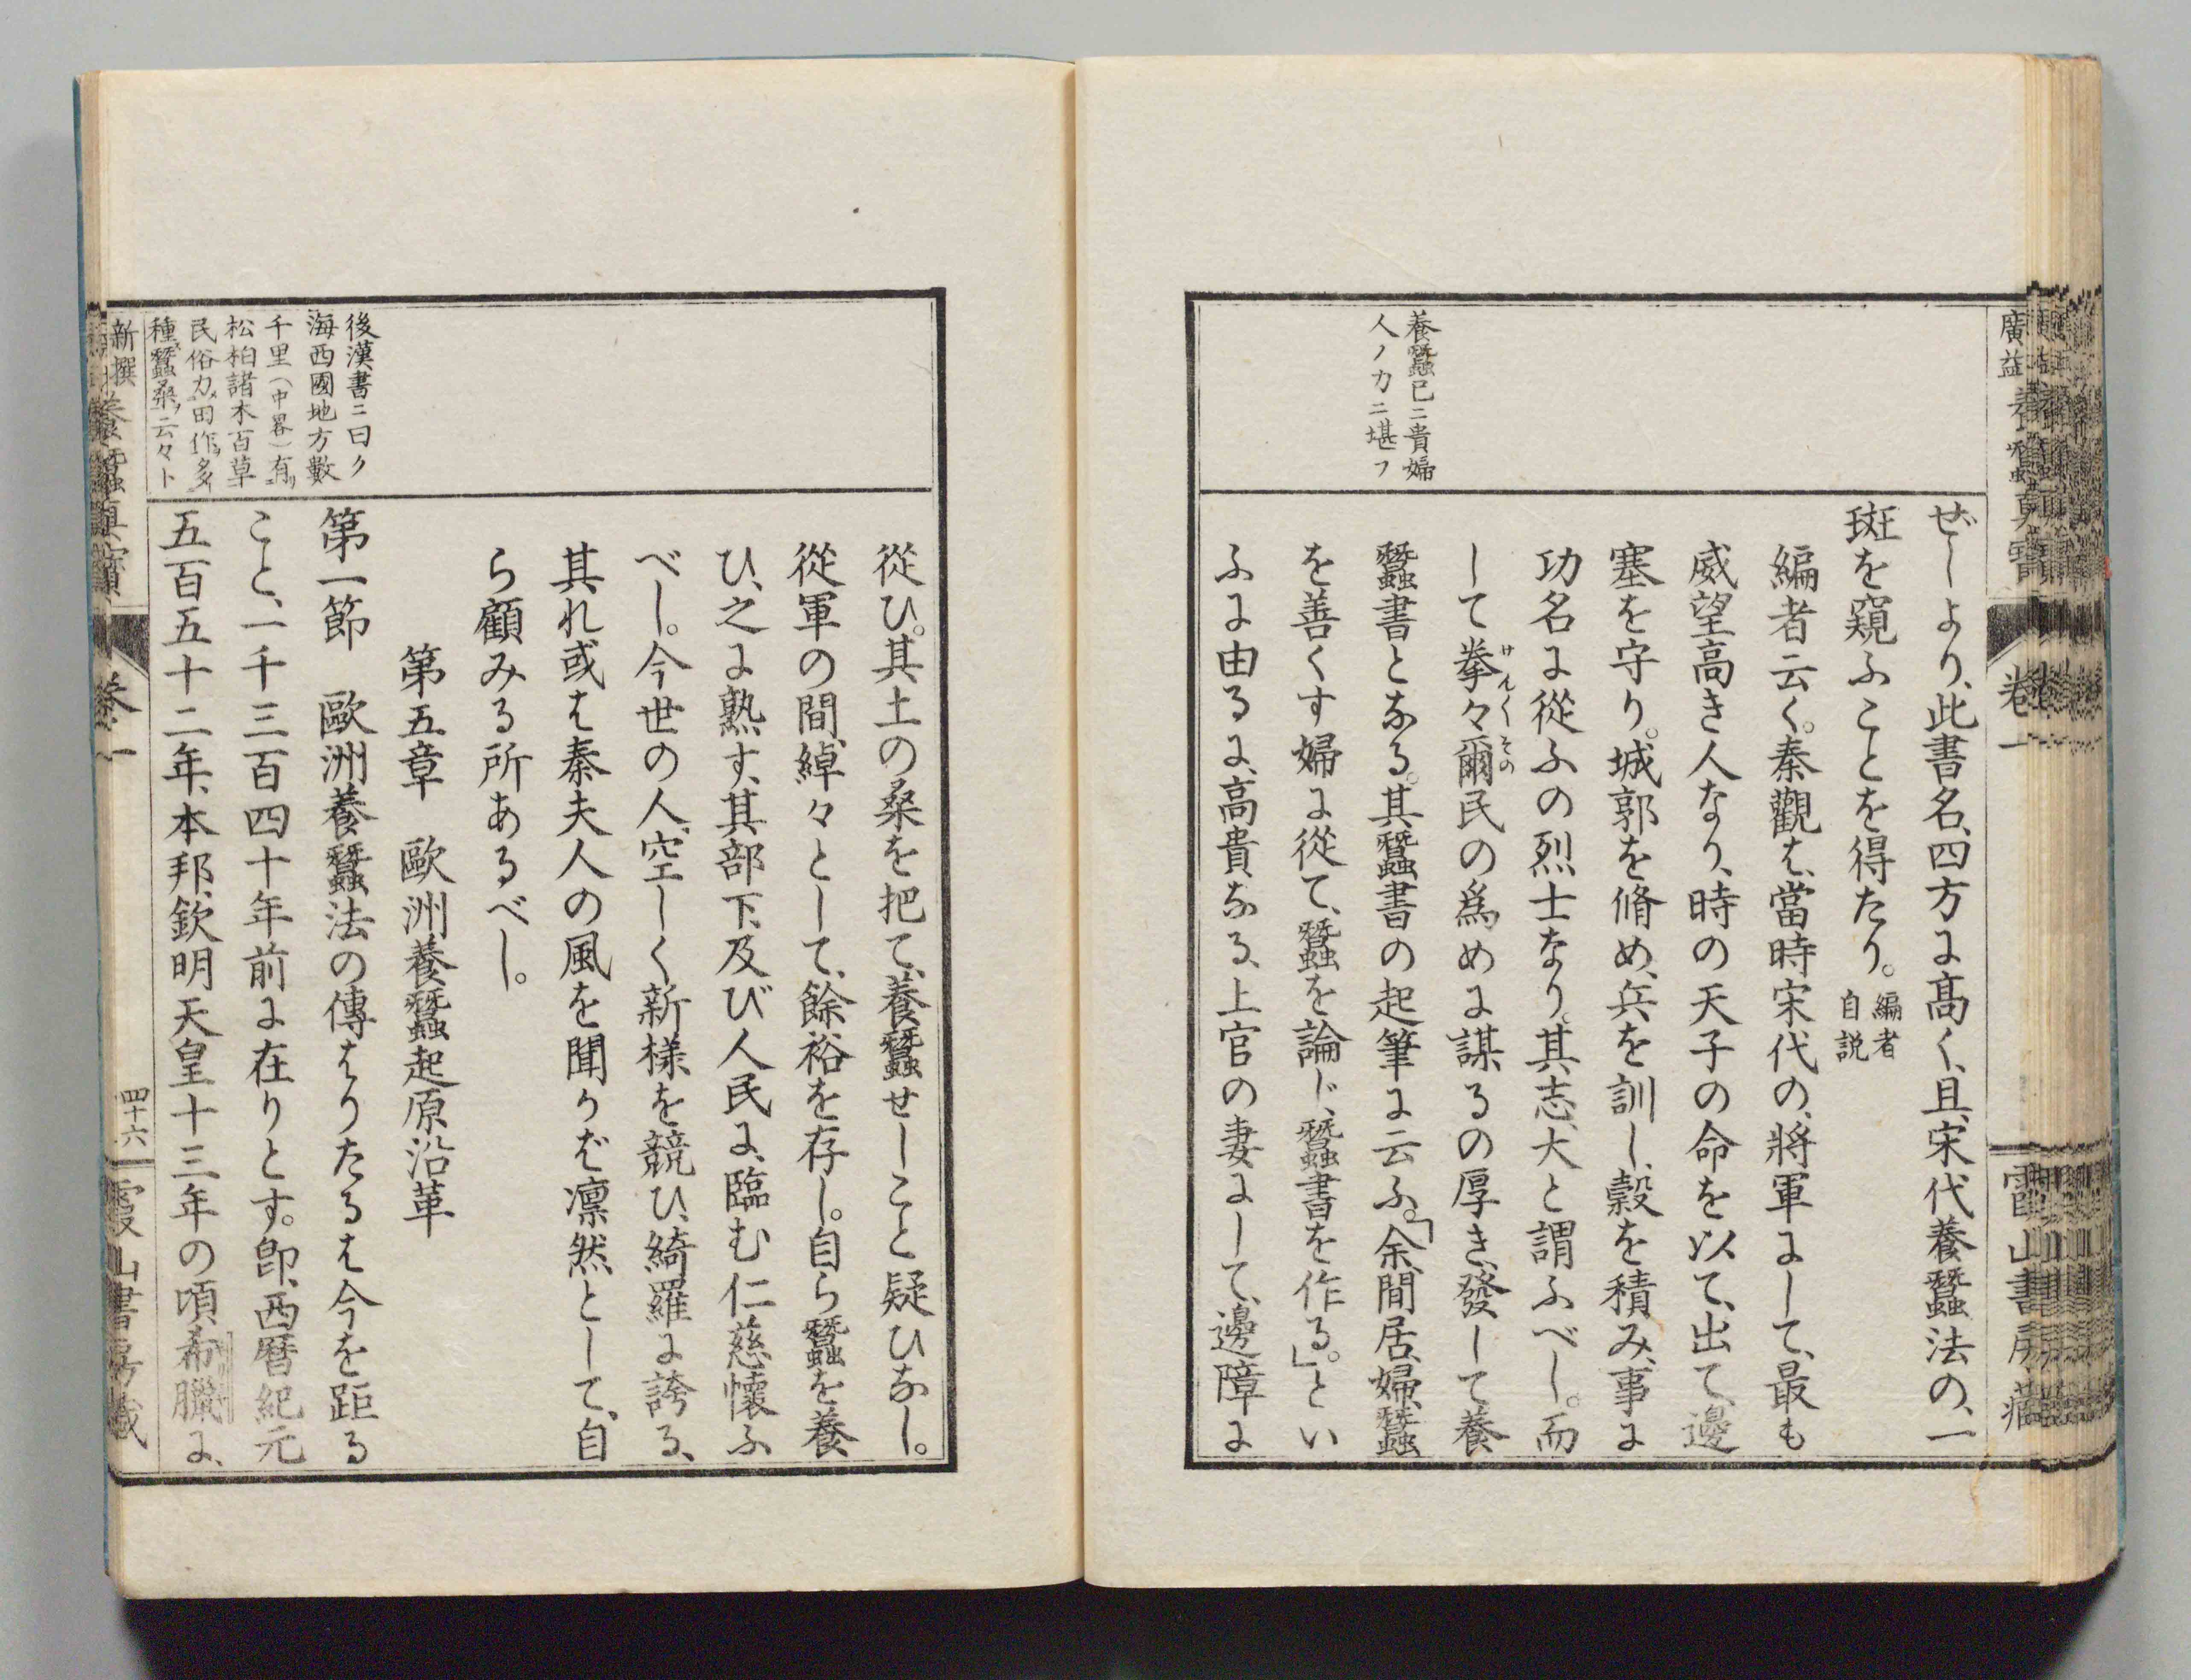 廣益 養蠶眞寶 卷一
養蠶已ニ貴婦
人ノ力ニ堪フ
ぜしより、此書名、四方に高く、且、宋代養蠶法の、一
斑を窺ふことを得たり。編者自説
編者云く。秦觀は、當時宋代の、將軍にして、最も
威望高き人なり、時の天子の命を以て、出て、邊
塞を守り。城郭を脩め、兵を訓し、穀を積み、事に
功名に從ふの烈士なり。其志、大と謂ふべし。而
して拳々爾民の爲めに謀るの厚き、發して養
蠶書となる。其蠶書の起筆に云ふ。「余、間居、婦、蠶
を善くす婦に從て、蠶を論じ、蠶書を作る。」とい
ふに由るに、高貴なる、上官の妻にして、邊障に
後漢書ニ曰ク
海西國地方數
千里(中畧)有リ
松柏諸木百草
民俗力メ田作多ク
種蠶桑ヲ云々ト
從ひ。其土の桑を把て、養蠶せしこと疑ひなし。
從軍の間、綽々として、餘裕を存し。自ら蠶を養
ひ、之に熟す、其部下、及び人民に、臨む仁慈懷ふ
べし。今世の人、空しく新樣を競ひ、綺羅に誇る、
其れ或は秦夫人の風を聞かば凛然として、自
ら顧みる所あるべし。
第五章 歐洲養蠶起原沿革
第一節 歐洲養蠶法の傳はりたるは今を距る
こと、一千三百四十年前に在りとす。即、西暦紀元
五百五十二年、本邦、欽明天皇十三年の頃希臘に、
新撰 養蠶眞寶 卷一 四十六 霞山書房藏